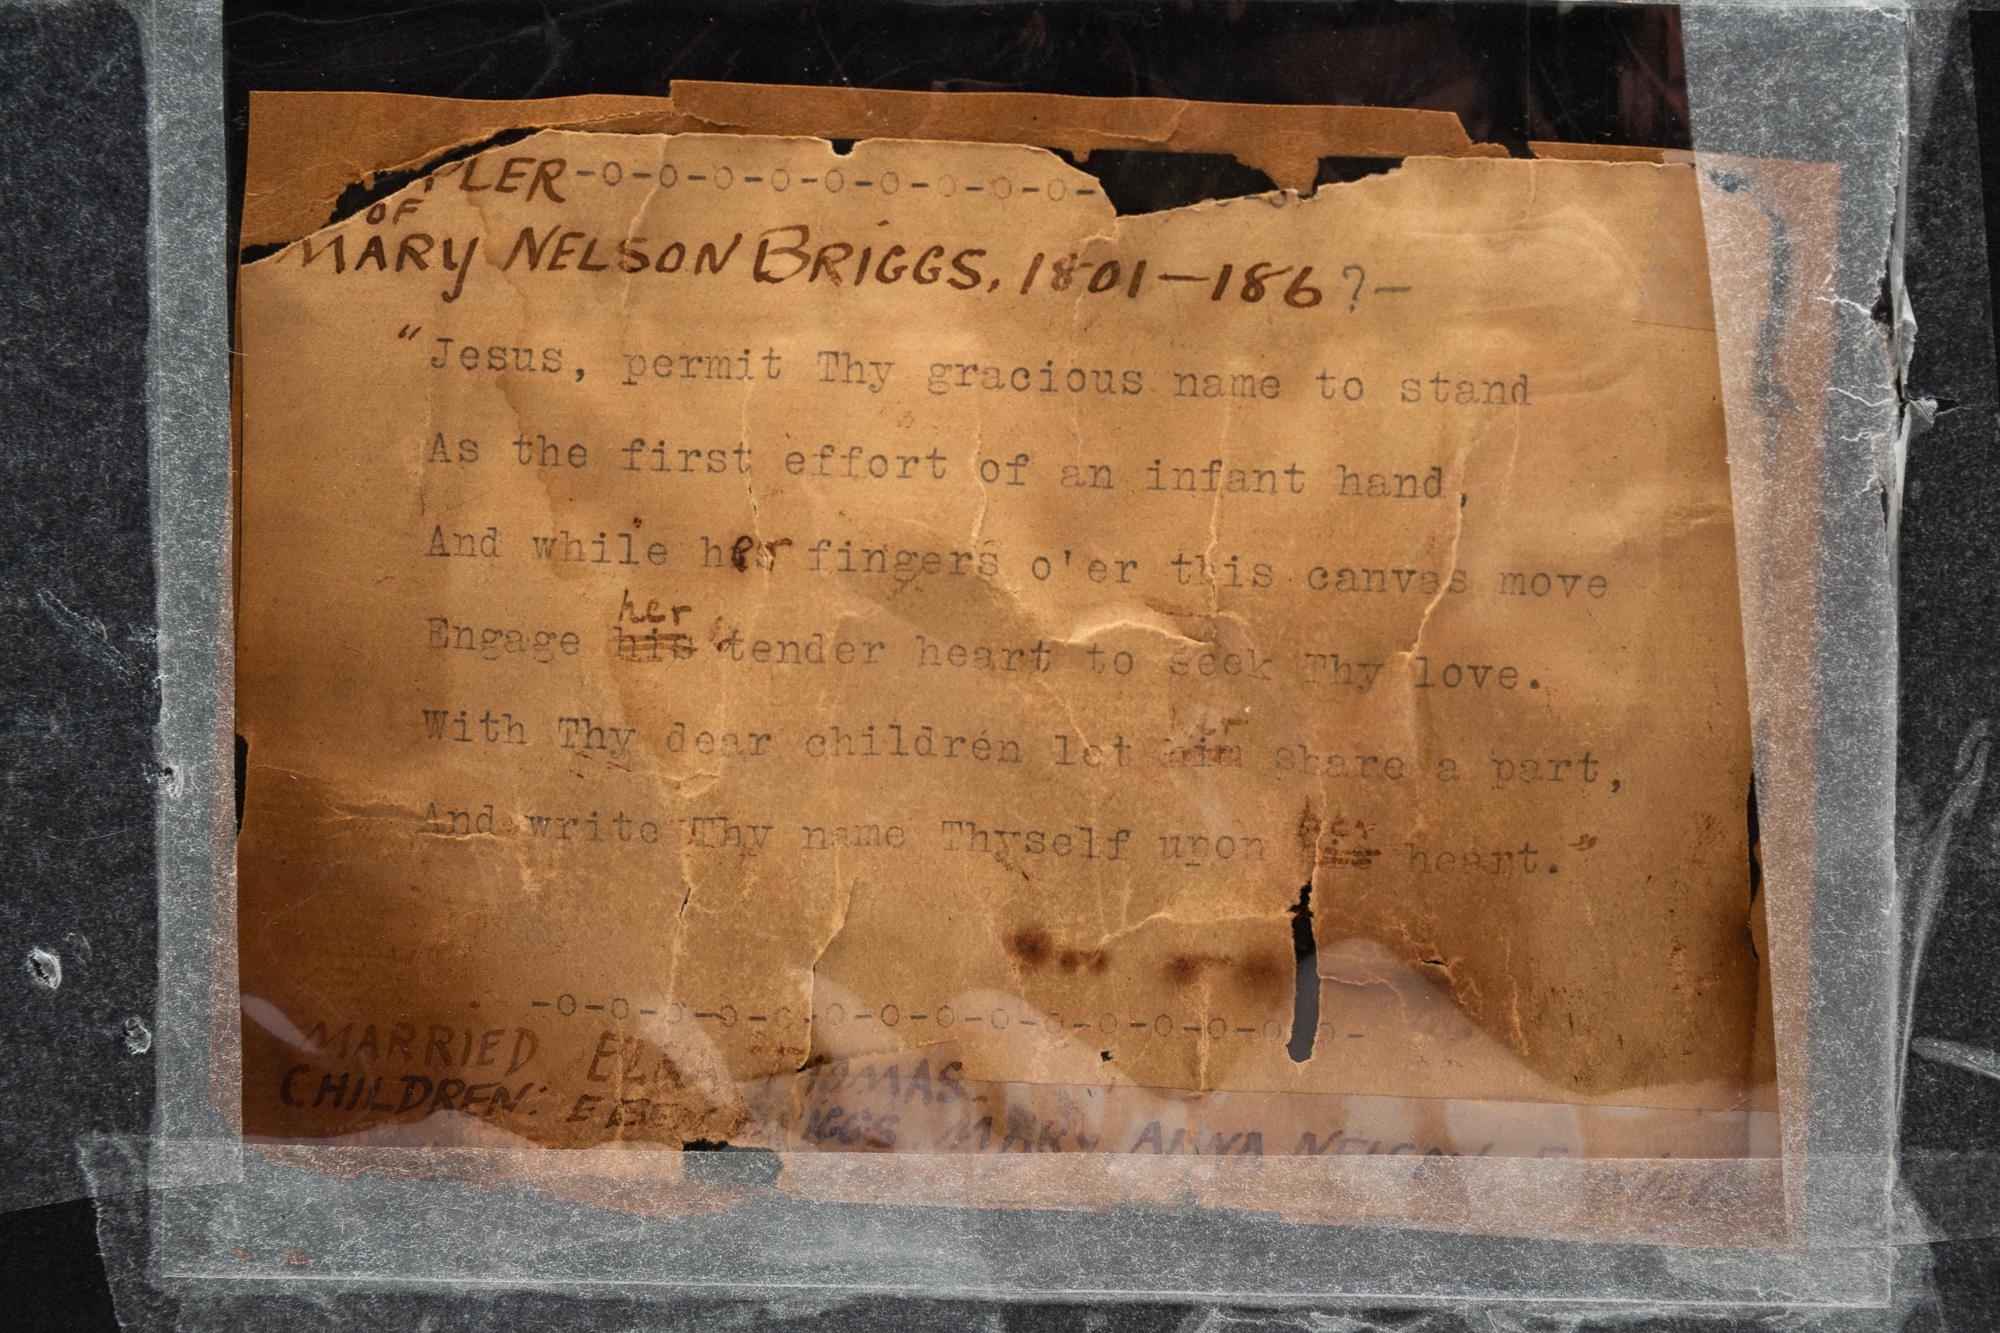 PLER-o-o-o-o-o-o-o-o-o-
OF
MARY NELSON BRIGGS, 1801—186?—
"Jesus, permit Thy gracious name to stand
As the first effort of an infant hand,
And while her fingers o'er this canvas move
her
Engage his tender heart to seek Thy love.
er
With Thy dear children let him share a part,
her
And write Thy name Thyself upon his heart."
-o-o-o-o-o-o-o-o-o-o-o-o-o-o-o-
MARRIED ELKA THOMAS.
CHILDREN: EBEN BRIGGS, MARY, ANNA NELSON,